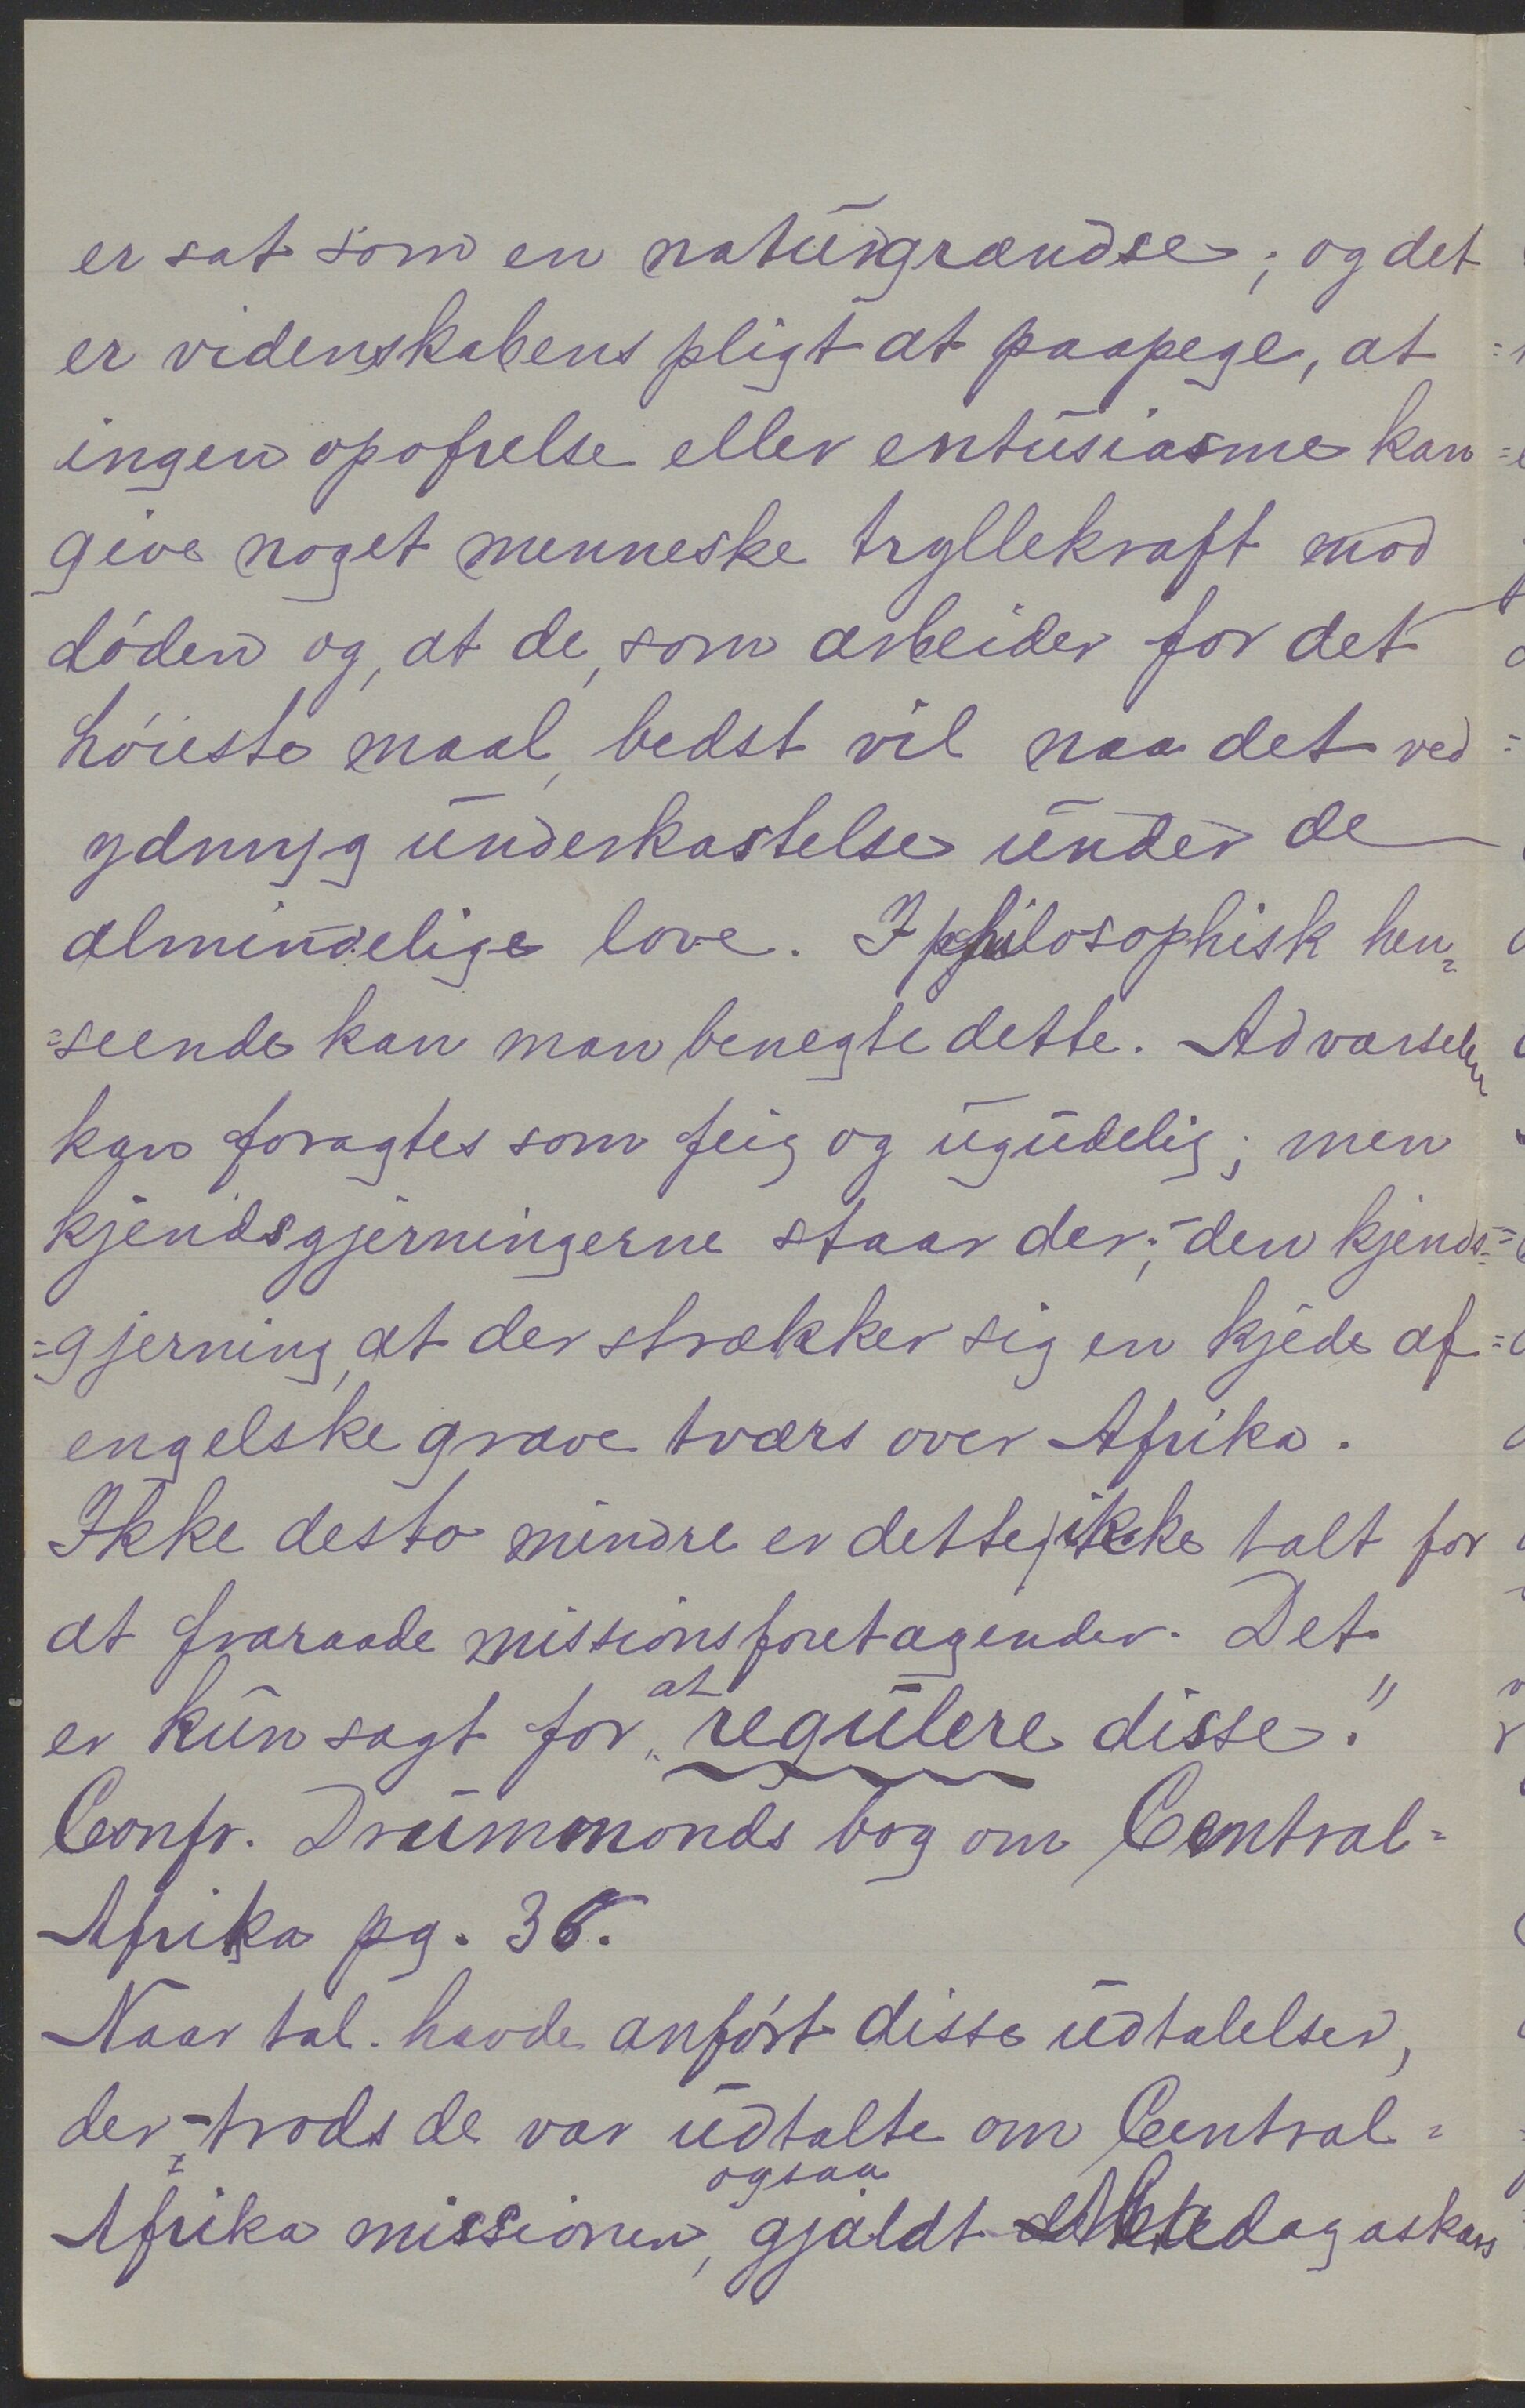 er sat som en naturgrændse; og det
er videnskabens pligt at paapege, at
ingen opofrelse eller entusiasme kan
give noget menneske tryllekraft mod
døden og, at de, som arbeider for det
høieste maal, bedst vil naa det ved
ydmyg underkastelse under de
almindelige love. I philosophisk hen=
=seende kan man benegte dette. Advarselen
kan foragtes som feig og ugudelig; men
kjendsgjerningerne staar der; - den kjends=
=gjerning, at der strækker sig en kjede af
engelske grave tværs over Afrika.
Ikke desto mindre er dette ikke talt for
at fraraade missionsforetagender. Det
er kun sagt for „at regulere disse."
Confr. Drummonds bog om Central=
Afrika pg. 36.
Naar tal. havde anført disse udtalelser,
der - trods de var udtalte om Central=
Afrika missionen, ogsaa gjaldt Madagaskars